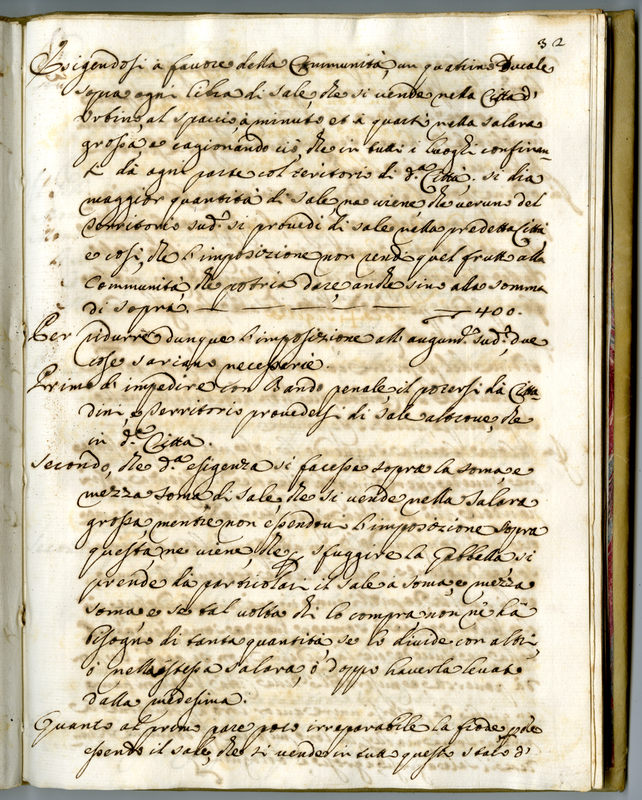 32
Esigendosi à favore della Communità, un quatrino Ducale
sopra ogni libra di sale, che si vende nella Città d'
Urbino, al spaccio, à minuto et à quarti nella salara
grossa, e cagionando ciò, che in tutti i luoghi confinan-
ti dà ogni parte col territorio di d.ª Città si dia
maggior quantità di sale, ne viene, che veruno del
Territorio sud.º si provedi di sale nella predetta Città
e così, che l'imposizione non rende quel frutto alla
Communità, che potria dare, anche sino alla somma
di sopra. — — — 400.
Per ridurre dunque l'imposizione all' augum.º sud.º due
cose sariano necessarie.
Primo d'impedire con Bando penale il potersi dà Citta
dini, e Territorio provedersi di sale altrove, che
in d.ª Città.
Secondo, che d.ª esigenza si facesse sopra la soma, e
mezza soma di sale, che si vende nella Salara
grossa, mentre non essendovi l'imposizione sopra
questa, ne viene, che p sfuggire la gabbella si
prende dà particolari il sale à soma, e mezza
soma, e se tal volta chi lo compra non n'hà
bisogno di tanta quantità, se lo divide con altri,
ò nella stessa salara, ò doppo haverla levata
dalla medesima.
Quanto al primo pare poco irreparabile la frode, p che
essendo il sale, che si vende in tutto questo stato d'